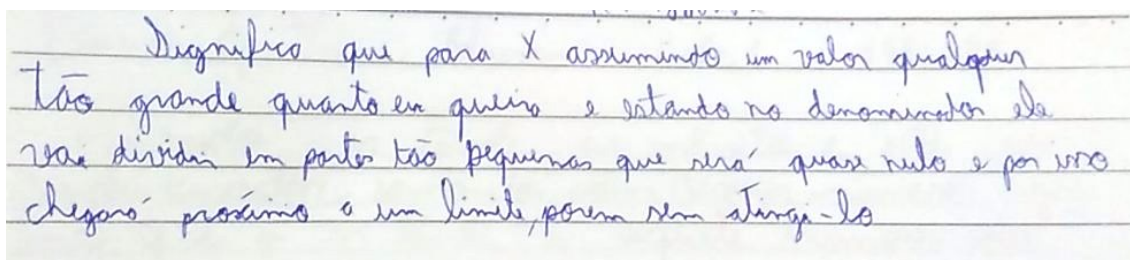 Significa que para X assumindo um valor qualquer
tão grande quanto eu queira e estando no denominador ele
vai dividir em partes tão pequenas que será quase nulo e por isso
chegará próximo a um limite, porem sem atingi-lo